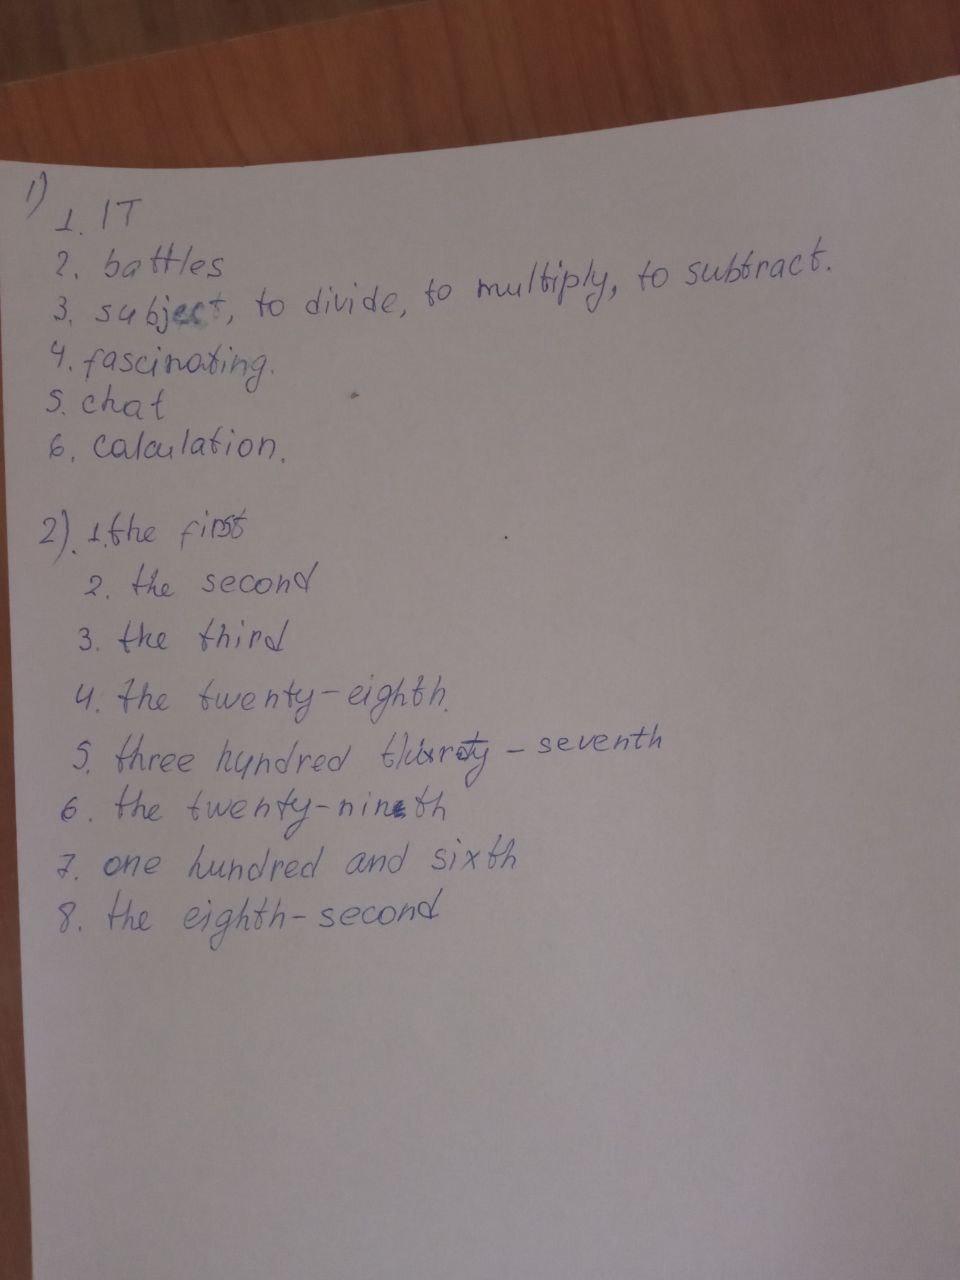 1)
1. IT
2. battles
3. subject, to divide, to multiply, to subtract.
4. fascinating.
5. chat
6. calculation.
2). 1. the first
2. the second
3. the third
4. the twenty-eighth.
5. three hundred thirty-seventh
6. the twenty-nineth
7. one hundred and sixth
8. the eighth-second